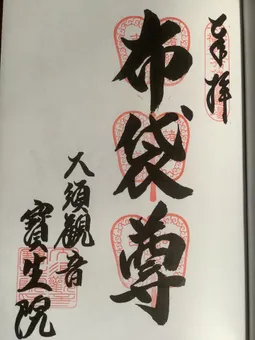 奉拝
布袋尊
大須観音
寳生院